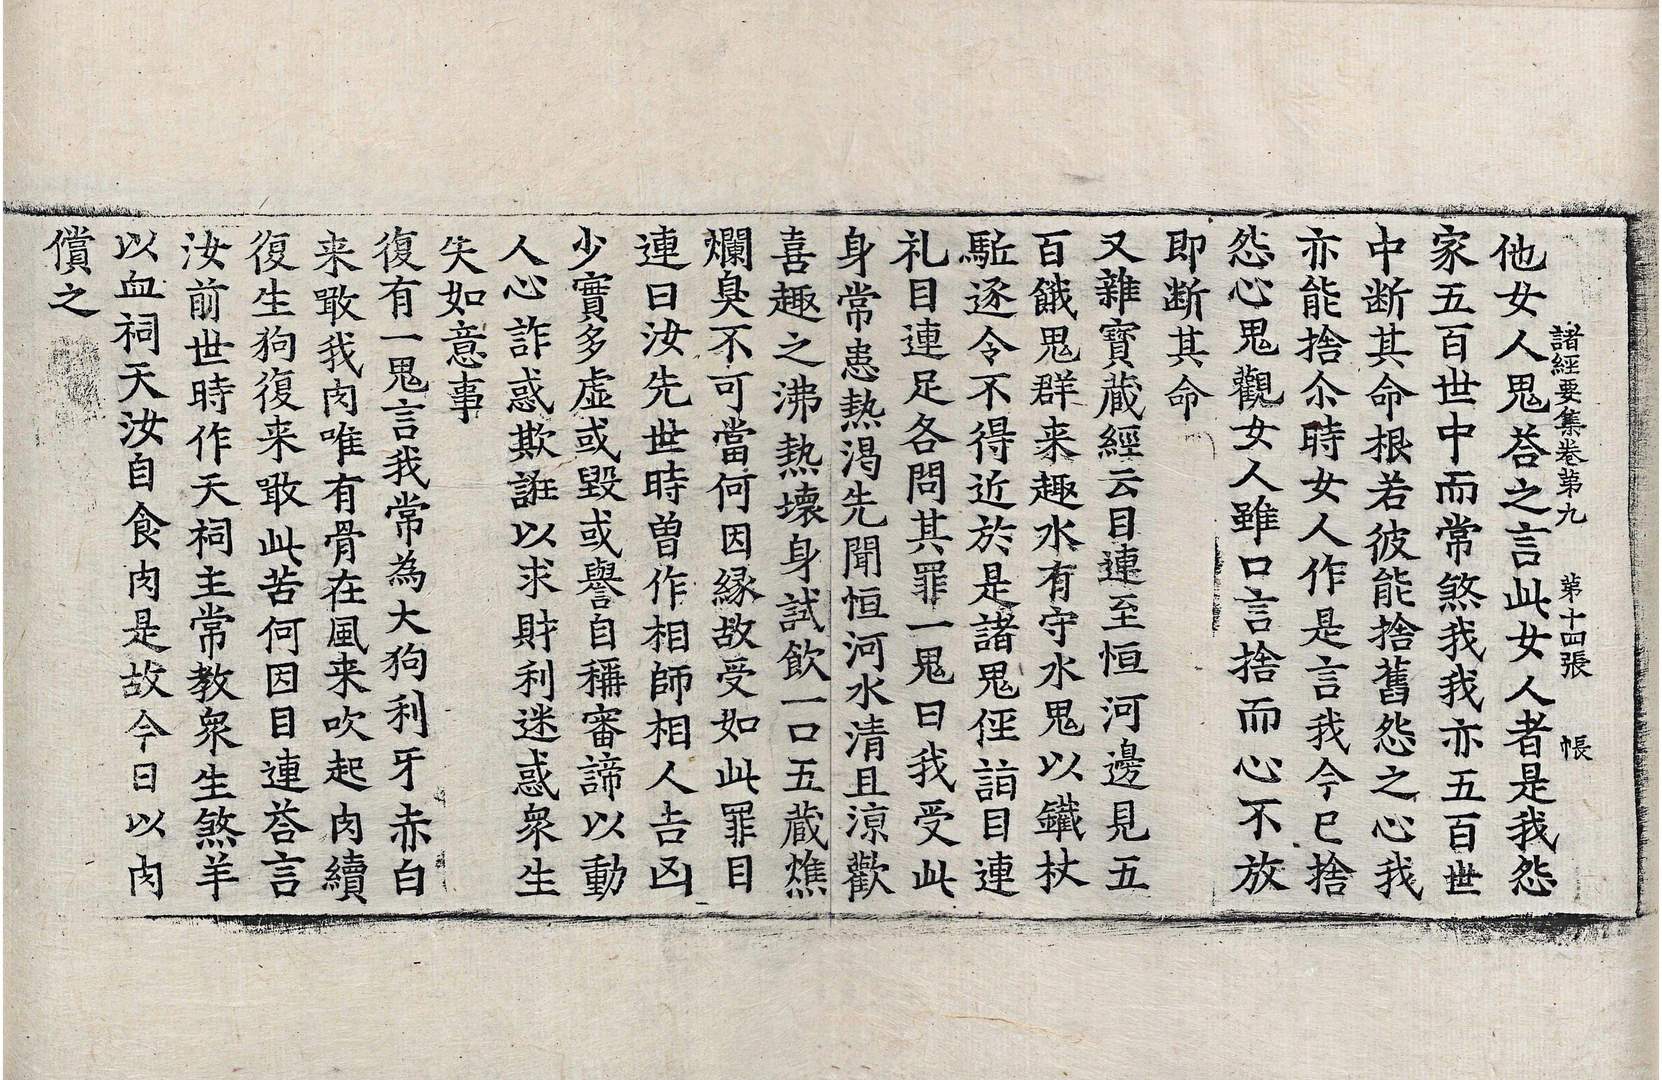 諸經要集卷第九 第十四張 帳
他女人鬼荅之言此女人者是我怨
家五百世中而常煞我我亦五百世
中断其命根若彼能捨舊怨之心我
亦能捨尒時女人作是言我今已捨
怨心鬼觀女人雖口言捨而心不放
即断其命
又雜寶藏經云目連至恒河邊見五
百餓鬼群来趣水有守水鬼以鐵杖
駈逐令不得近於是諸鬼侄詣目連
礼目連足各問其罪一鬼曰我受此
身常患熱渴先聞恒河水清且涼歡
喜趣之沸熱壞身試飲一口五藏燋
爛臭不可當何因縁故受如此罪目
連曰汝先世時曽作相師相人吉凶
少實多虚或毀或譽自稱審諦以動
人心詐惑欺誑以求財利迷惑衆生
失如意事
復有一鬼言我常為大狗利牙赤白
来噉我肉唯有骨在風来吹起肉續
復生狗復来噉此苦何因目連荅言
汝前世時作天祠主常教衆生煞羊
以血祠天汝自食肉是故今日以肉
償之